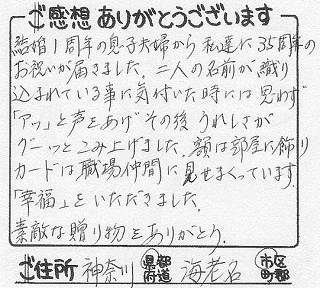 ご感想ありがとうございます
結婚1周年の息子夫婦から私達に35周年の
お祝いが届きました。二人の名前が織り
込まれている事に気付いた時には思わず
「アッ」と声をあげその後うれしさが
グーッとこみ上げました。額は部屋に飾り
カードは職場仲間に見せまくっています。
「幸福」をいただきました。
素敵な贈り物をありがとう。
ご住所 神奈川 都道府県 海老名 市区町郡